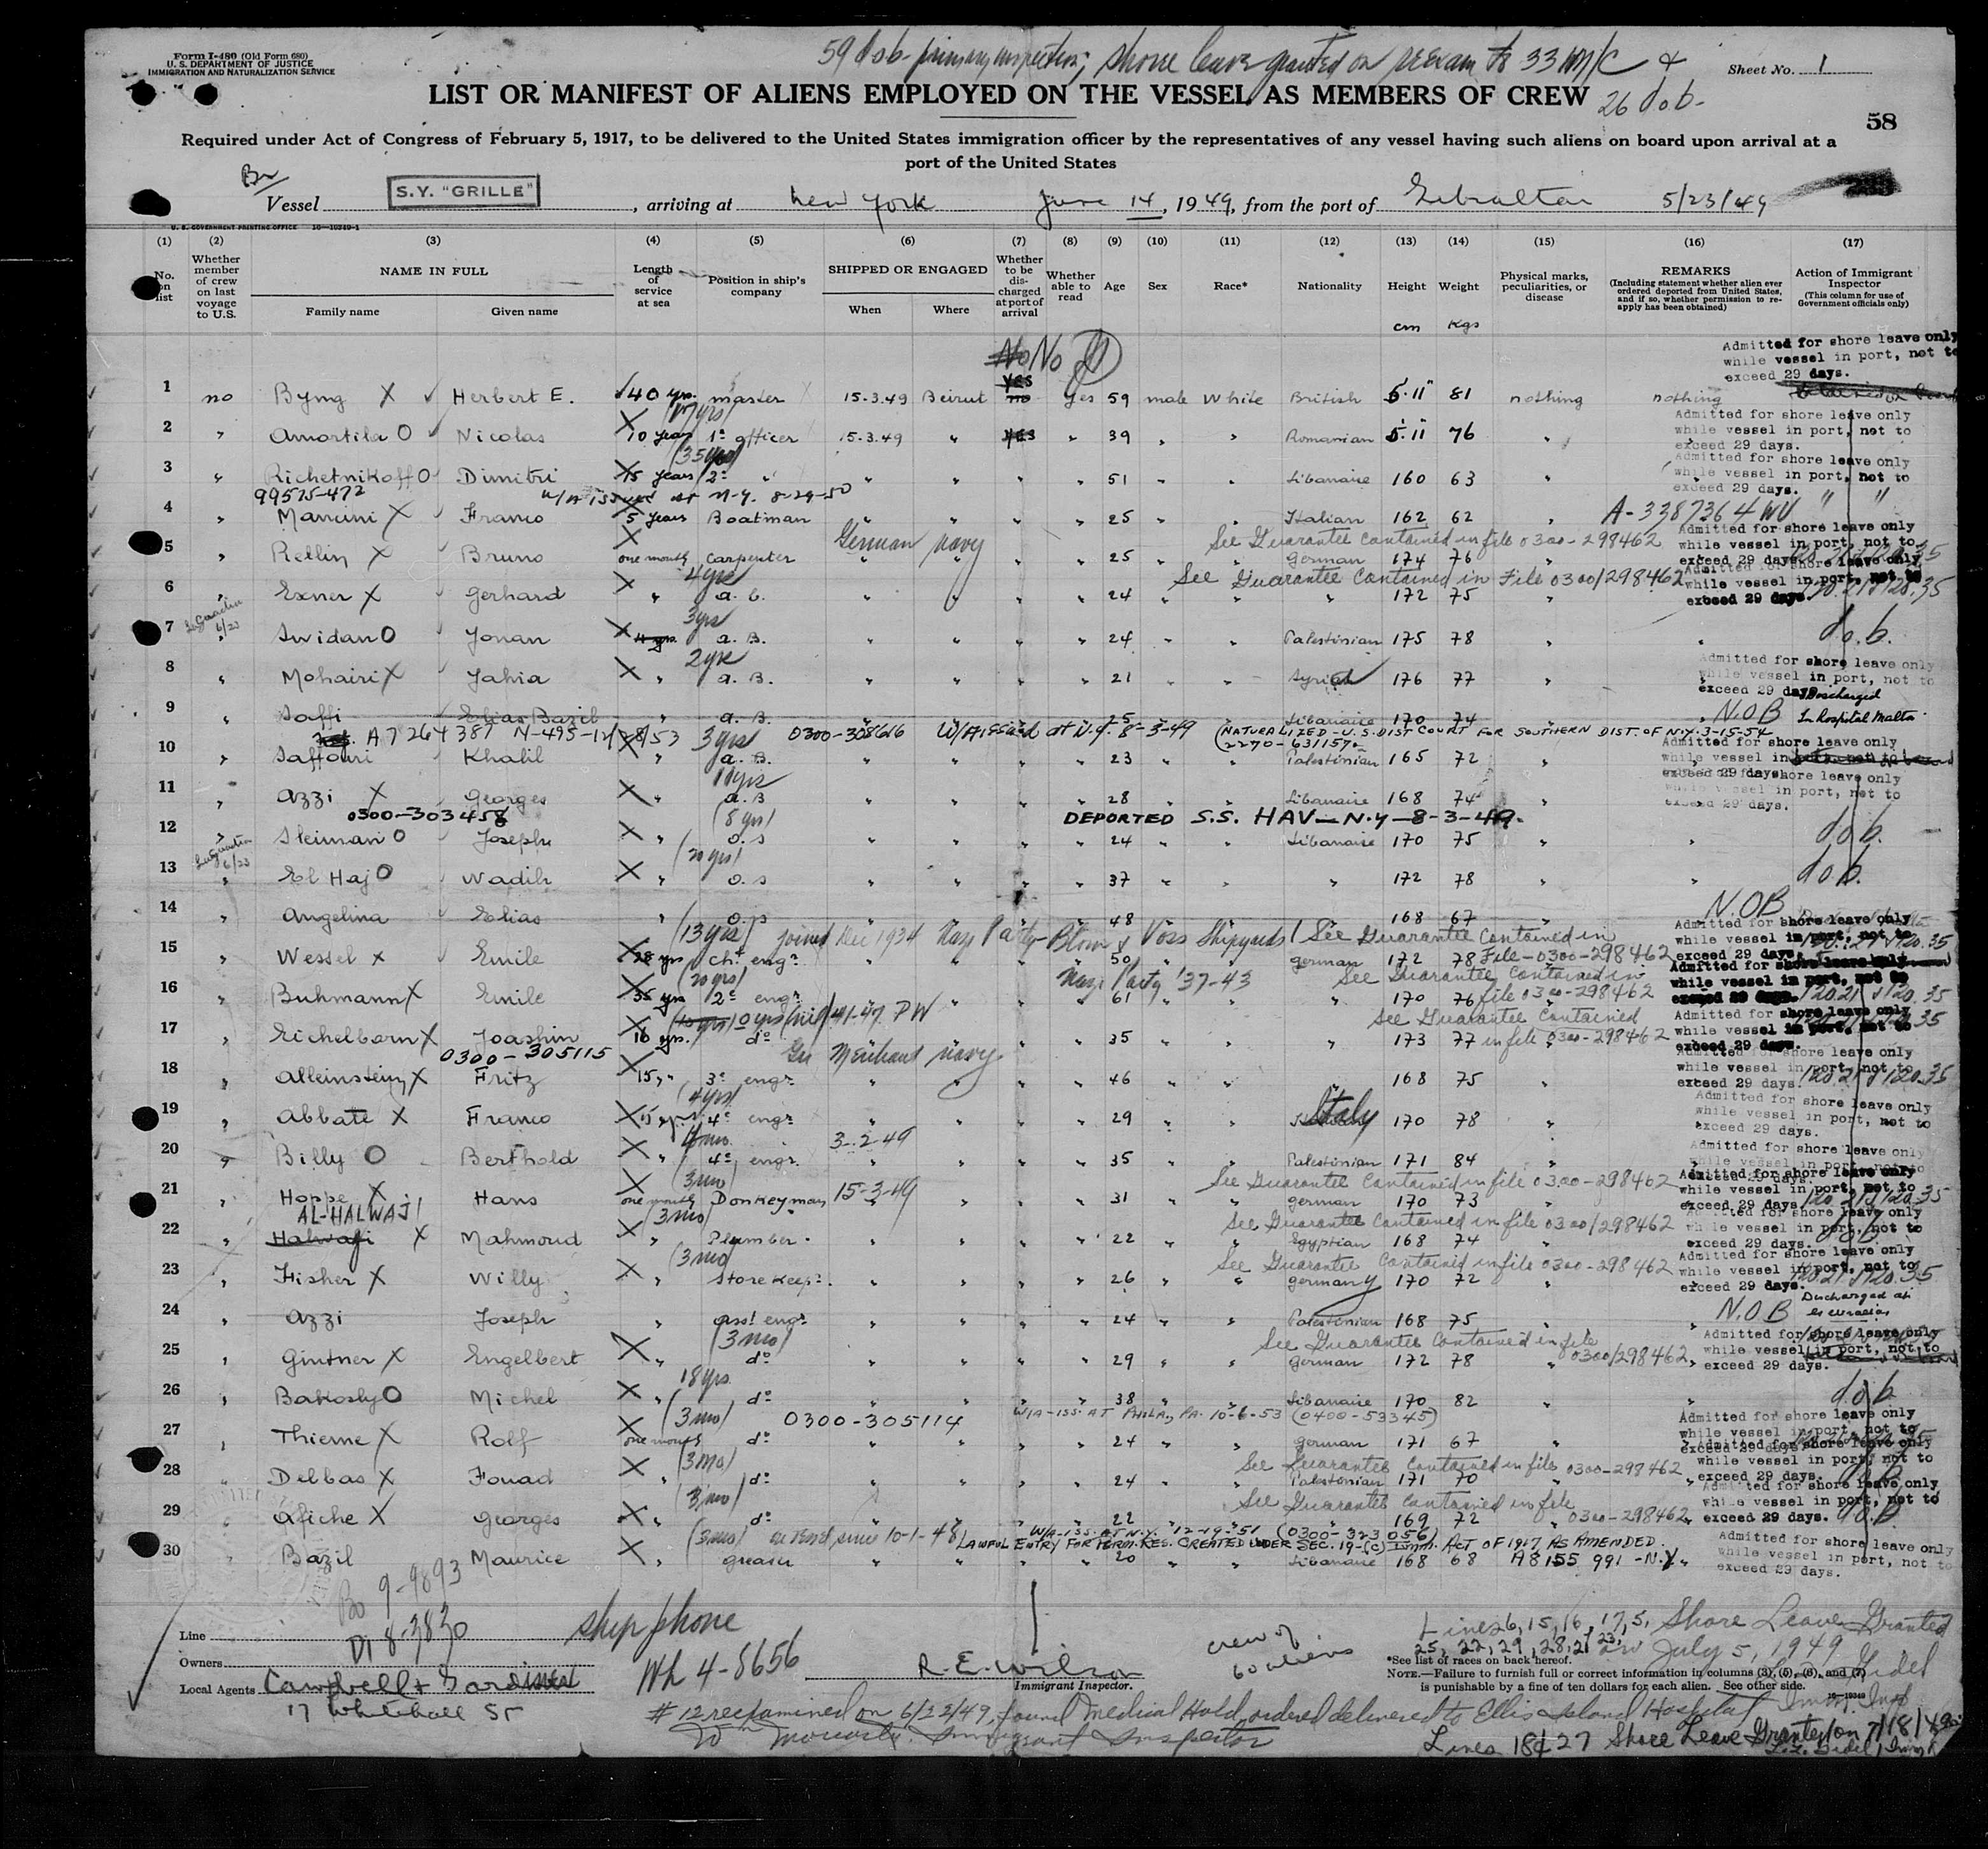 59 dob. primary inspection; shore leave granted on reexam to 33 M/C &
26 dob.
Form I-480 (Old Form 680)
U. S. DEPARTMENT OF JUSTICE
IMMIGRATION AND NATURALIZATION SERVICE
Sheet No. 1
LIST OR MANIFEST OF ALIENS EMPLOYED ON THE VESSEL AS MEMBERS OF CREW
58
Required under Act of Congress of February 5, 1917, to be delivered to the United States immigration officer by the representatives of any vessel having such aliens on board upon arrival at a
port of the United States
Br
Vessel S.Y. "GRILLE", arriving at New York June 14, 1949, from the port of Gibraltar 5/23/49
U. S. GOVERNMENT PRINTING OFFICE 16—10349-1
(1) (2) (3) (4) (5) (6) (7) (8) (9) (10) (11) (12) (13) (14) (15) (16) (17)
No. on list
Whether member of crew on last voyage to U.S.
NAME IN FULL
Family name Given name
Length of service at sea
Position in ship's company
SHIPPED OR ENGAGED
When Where
Whether to be discharged at port of arrival
Whether able to read
Age Sex Race* Nationality Height Weight
cm Kgs
Physical marks, peculiarities, or disease
REMARKS
(Including statement whether alien ever ordered deported from United States, and if so, whether permission to reapply has been obtained)
Action of Immigrant Inspector
(This column for use of Government officials only)
No No
Admitted for shore leave only
while vessel in port, not to
exceed 29 days.
yes
1 no Byng X Herbert E. 40 yrs. master 15.3.49 Beirut no yes 59 male White British 5.11 81 nothing nothing
Admitted for shore leave only
while vessel in port, not to
exceed 29 days.
(17 yrs)
2 " Amortila O Nicolas 10 years 1º officer 15.3.49 " yes " 39 " " Romanian 5.11 76 "
Admitted for shore leave only
while vessel in port, not to
exceed 29 days.
(35 yrs)
3 " Richetnikoff O Dimitri 15 years 2º " " " " " 51 " " Libanaise 160 63 "
99515-472 W/A issued at N.Y. 8-29-50
4 " Mancini X Franco 5 years Boatman " " " " 25 " " Italian 162 62 " A-3387364 WV " "
German Navy See Guarantee contained in file 0300-298462
Admitted for shore leave only
while vessel in port, not to
exceed 29 days.
5 " Rellin X Bruno one month carpenter " " " " 25 " " German 174 76 "
4 yrs See Guarantee Contained in File 0300/298462
Admitted for shore leave only
while vessel in port, not to
exceed 29 days.
6 " Exner X Gerhard " a. B. " " " " 24 " " " 172 75 "
3 yrs
7 " Swidan O Jonan 4 yrs. a. B. " " " " 24 " " Palestinian 175 78 " d.o.b.
2 yrs
8 " Mohairi X Jahia " a. B. " " " " 21 " " Syrian 176 77 "
Admitted for shore leave only
while vessel in port, not to
exceed 29 days
9 " Saffi Elias Bazil " a. B. 25 Libanaise 170 74 " N.O.B Discharged
In Hospital Malta
A7264387 N-495-12/28/53 3 yrs 0300-308616 W/A issued at N.Y. 8-3-49 (NATURALIZED-U.S. DIST COURT FOR SOUTHERN DIST. OF N.Y. 3-15-54
(2270-631157.
10 " Saffouri Khalil " a. B. " " " " 23 " " Palestinian 165 72 "
Admitted for shore leave only
while vessel in port, not to
exceed 29 days
11 yrs
11 " Azzi X Georges " a. B " " " " 28 " " Libanaise 168 74 "
0300-303458 (8 yrs) DEPORTED S.S. HAV—N.Y—8-3-49.
12 " Sleiman O Joseph " o. s " " " " 24 " " Libanaise 170 75 " " d.o.b.
(20 yrs)
13 " El Haj O Wadih " o. s " " " " 37 " " " 172 78 " " d.o.b.
14 " Angelina Elias " o. s 48 168 67 N.O.B
(13 yrs) joined Dec 1934 Nazi Party—Blom & Voss Shipyards / See Guarantee Contained in
File-0300-298462
Admitted for shore leave only
while vessel in port, not to
exceed 29 days.
15 " Wessel x Emile 28 yrs chf engr. " " " " 50 " " German 172 78
(20 yrs) Nazi Party '37-43 See Guarantee Contained in
file 0300-298462
16 " Buhmann X Emile 35 yrs 2º engr. " " 61 " " " 170 76
Admitted for shore leave only
while vessel in port, not to
exceed 29 days.
41-47 PW See Guarantee Contained
in file 0300-298462
17 " Eichelborn X Joashin 10 yrs. dº " " " " 35 " " " 173 77
Admitted for shore leave only
while vessel in port, not to
exceed 29 days.
0300-305115 Ger Merchant Navy
18 " Alleinstein X Fritz 15 " 3º engr. " " " " 46 " " 168 75
Admitted for shore leave only
while vessel in port, not to
exceed 29 days.
(4 yrs)
19 " Abbate X Franco 4º engr. " " " " 29 " " Italy 170 78 "
Admitted for shore leave only
while vessel in port, not to
exceed 29 days.
3-2-49
20 " Billy O Berthold " 4º engr. " " " " 35 " " Palestinian 171 84 "
Admitted for shore leave only
(3 mo) See Guarantee Contained in file 0300-298462
21 " Hoppe X Hans one month Donkeyman 15-3-49 " " " 31 " " German 170 73 "
Admitted for shore leave only
while vessel in port, not to
exceed 29 days.
AL-HALWAJI (3 mo) See Guarantee Contained in file 0300/298462
22 " Halwafi X Mahmoud " Plumber " " " " 22 " " Egyptian 168 74 "
Admitted for shore leave only
while vessel in port, not to
exceed 29 days.
(3 mo) See Guarantee Contained in file 0300-298462
23 " Fisher X Willy " Storekeepr. " " " " 26 " " Germany 170 72 "
Admitted for shore leave only
while vessel in port, not to
exceed 29 days.
24 " Azzi Joseph " asst engr. " " " " 24 " " Palestinian 168 75 " N.O.B Discharged at
(3 mo) See Guarantee Contained in file
0300/298462
25 " Gintner X Engelbert " dº " " " " 29 " " German 172 78 "
Admitted for shore leave only
while vessel in port, not to
exceed 29 days.
18 yrs.
26 " Bakosly O Michel " dº " " " " 38 " " Libanaise 170 82 " " d.o.b
(3 mo) 0300-305114 W/A-ISS. AT PHILA, PA. 10-6-53 (0400-53345)
27 " Thieme X Rolf one month dº " " " " 24 " " German 171 67 "
Admitted for shore leave only
while vessel in port, not to
exceed 29 days
(3 mo) See Guarantee Contained in file 0300-298462
28 " Delbas X Fouad " dº " " " " 24 " " Palestinian 171 70 "
Admitted for shore leave only
while vessel in port, not to
exceed 29 days.
(3 mo) See Guarantee Contained in file
0300-298462
29 " Afiche X Georges " dº " " " " 22 " " " 169 72 "
Admitted for shore leave only
while vessel in port, not to
exceed 29 days. d.o.b
(3 mo) since 10-1-48 W/A-ISS. AT N.Y. 12-19-51 (0300-323056)
LAWFUL ENTRY FOR PERM. RES. CREATED UNDER SEC. 19-(c) IMM. ACT OF 1917 AS AMENDED.
30 " Bazil Maurice " greaser " " " " 20 " " Libanaise 168 68 A8155 991-N.Y.
Admitted for shore leave only
while vessel in port, not to
exceed 29 days.
Bo 9-9893
DI 8-3830
Line
Owners
Local Agents Campbell & Gardiner
17 Whitehall St
ship phone
Wh 4-8656
R. E. Wilson
Immigrant Inspector.
crew of
60 aliens
Lines 6, 15, 16, 17, 5, Shore Leave Granted
25, 22, 29, 28, 21, 23, on July 5, 1949
*See list of races on back hereof.
NOTE.—Failure to furnish full or correct information in columns (3), (5), (6), and (7)
is punishable by a fine of ten dollars for each alien. See other side.
16—10349
# 12 reexamined on 6/22/49, found medical Hold, ordered delivered to Ellis Island Hospital
Immigrant Inspector
Lines 18 & 27 Shore Leave Granted on 7/18/49